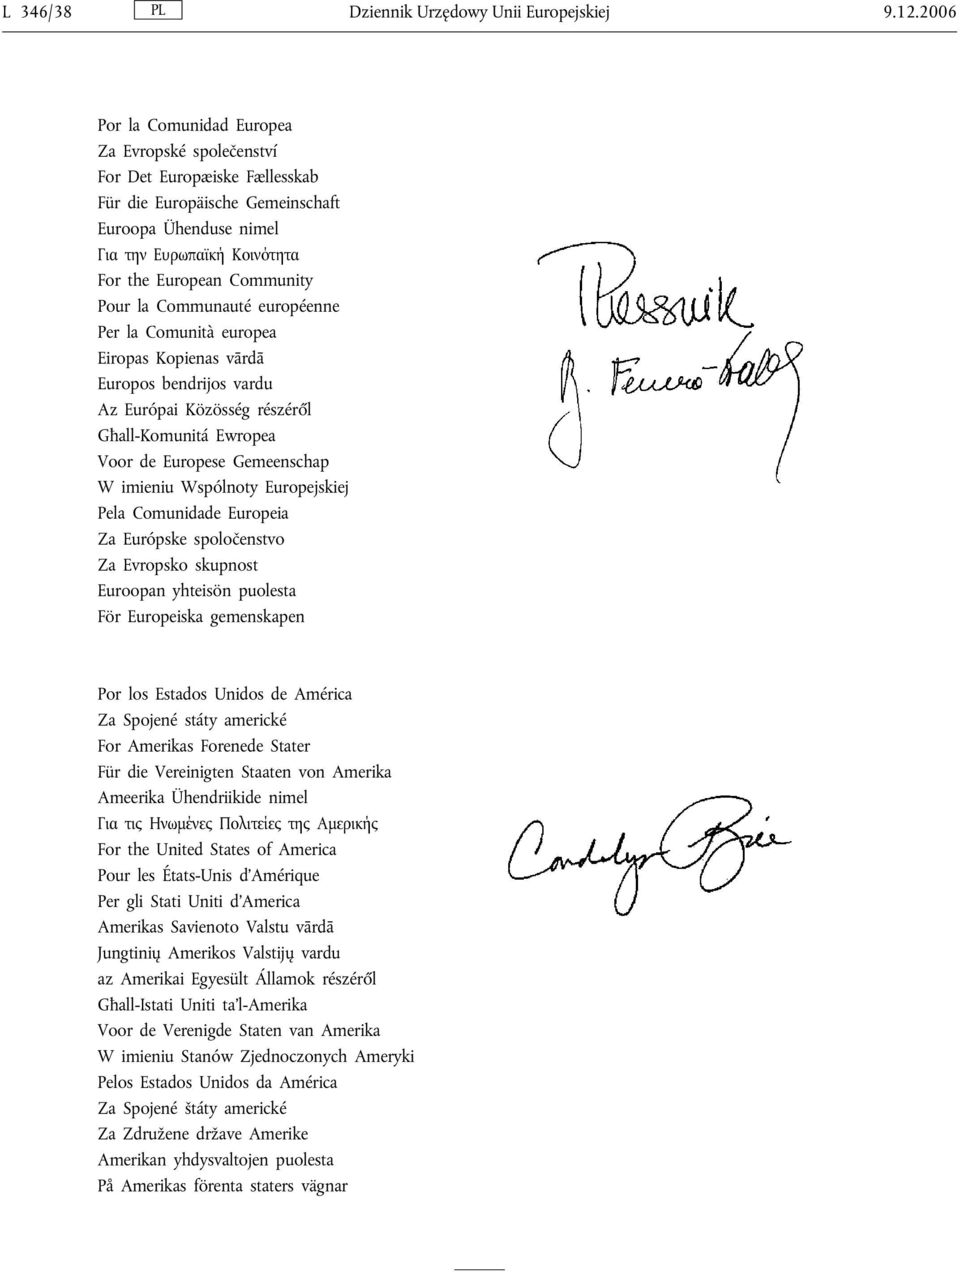 L 346/38 PL Dziennik Urzędowy Unii Europejskiej 9.12.2006
Por la Comunidad Europea
Za Evropské společenství
For Det Europæiske Fællesskab
Für die Europäische Gemeinschaft
Euroopa Ühenduse nimel
Για την Ευρωπαϊκή Κοινότητα
For the European Community
Pour la Communauté européenne
Per la Comunità europea
Eiropas Kopienas vārdā
Europos bendrijos vardu
Az Európai Közösség részéről
Għall-Komunitá Ewropea
Voor de Europese Gemeenschap
W imieniu Wspólnoty Europejskiej
Pela Comunidade Europeia
Za Európske spoločenstvo
Za Evropsko skupnost
Euroopan yhteisön puolesta
För Europeiska gemenskapen
Por los Estados Unidos de América
Za Spojené státy americké
For Amerikas Forenede Stater
Für die Vereinigten Staaten von Amerika
Ameerika Ühendriikide nimel
Για τις Ηνωμένες Πολιτείες της Αμερικής
For the United States of America
Pour les États-Unis d'Amérique
Per gli Stati Uniti d'America
Amerikas Savienoto Valstu vārdā
Jungtinių Amerikos Valstijų vardu
az Amerikai Egyesült Államok részéről
Għall-Istati Uniti ta'l-Amerika
Voor de Verenigde Staten van Amerika
W imieniu Stanów Zjednoczonych Ameryki
Pelos Estados Unidos da América
Za Spojené štáty americké
Za Združene države Amerike
Amerikan yhdysvaltojen puolesta
På Amerikas förenta staters vägnar